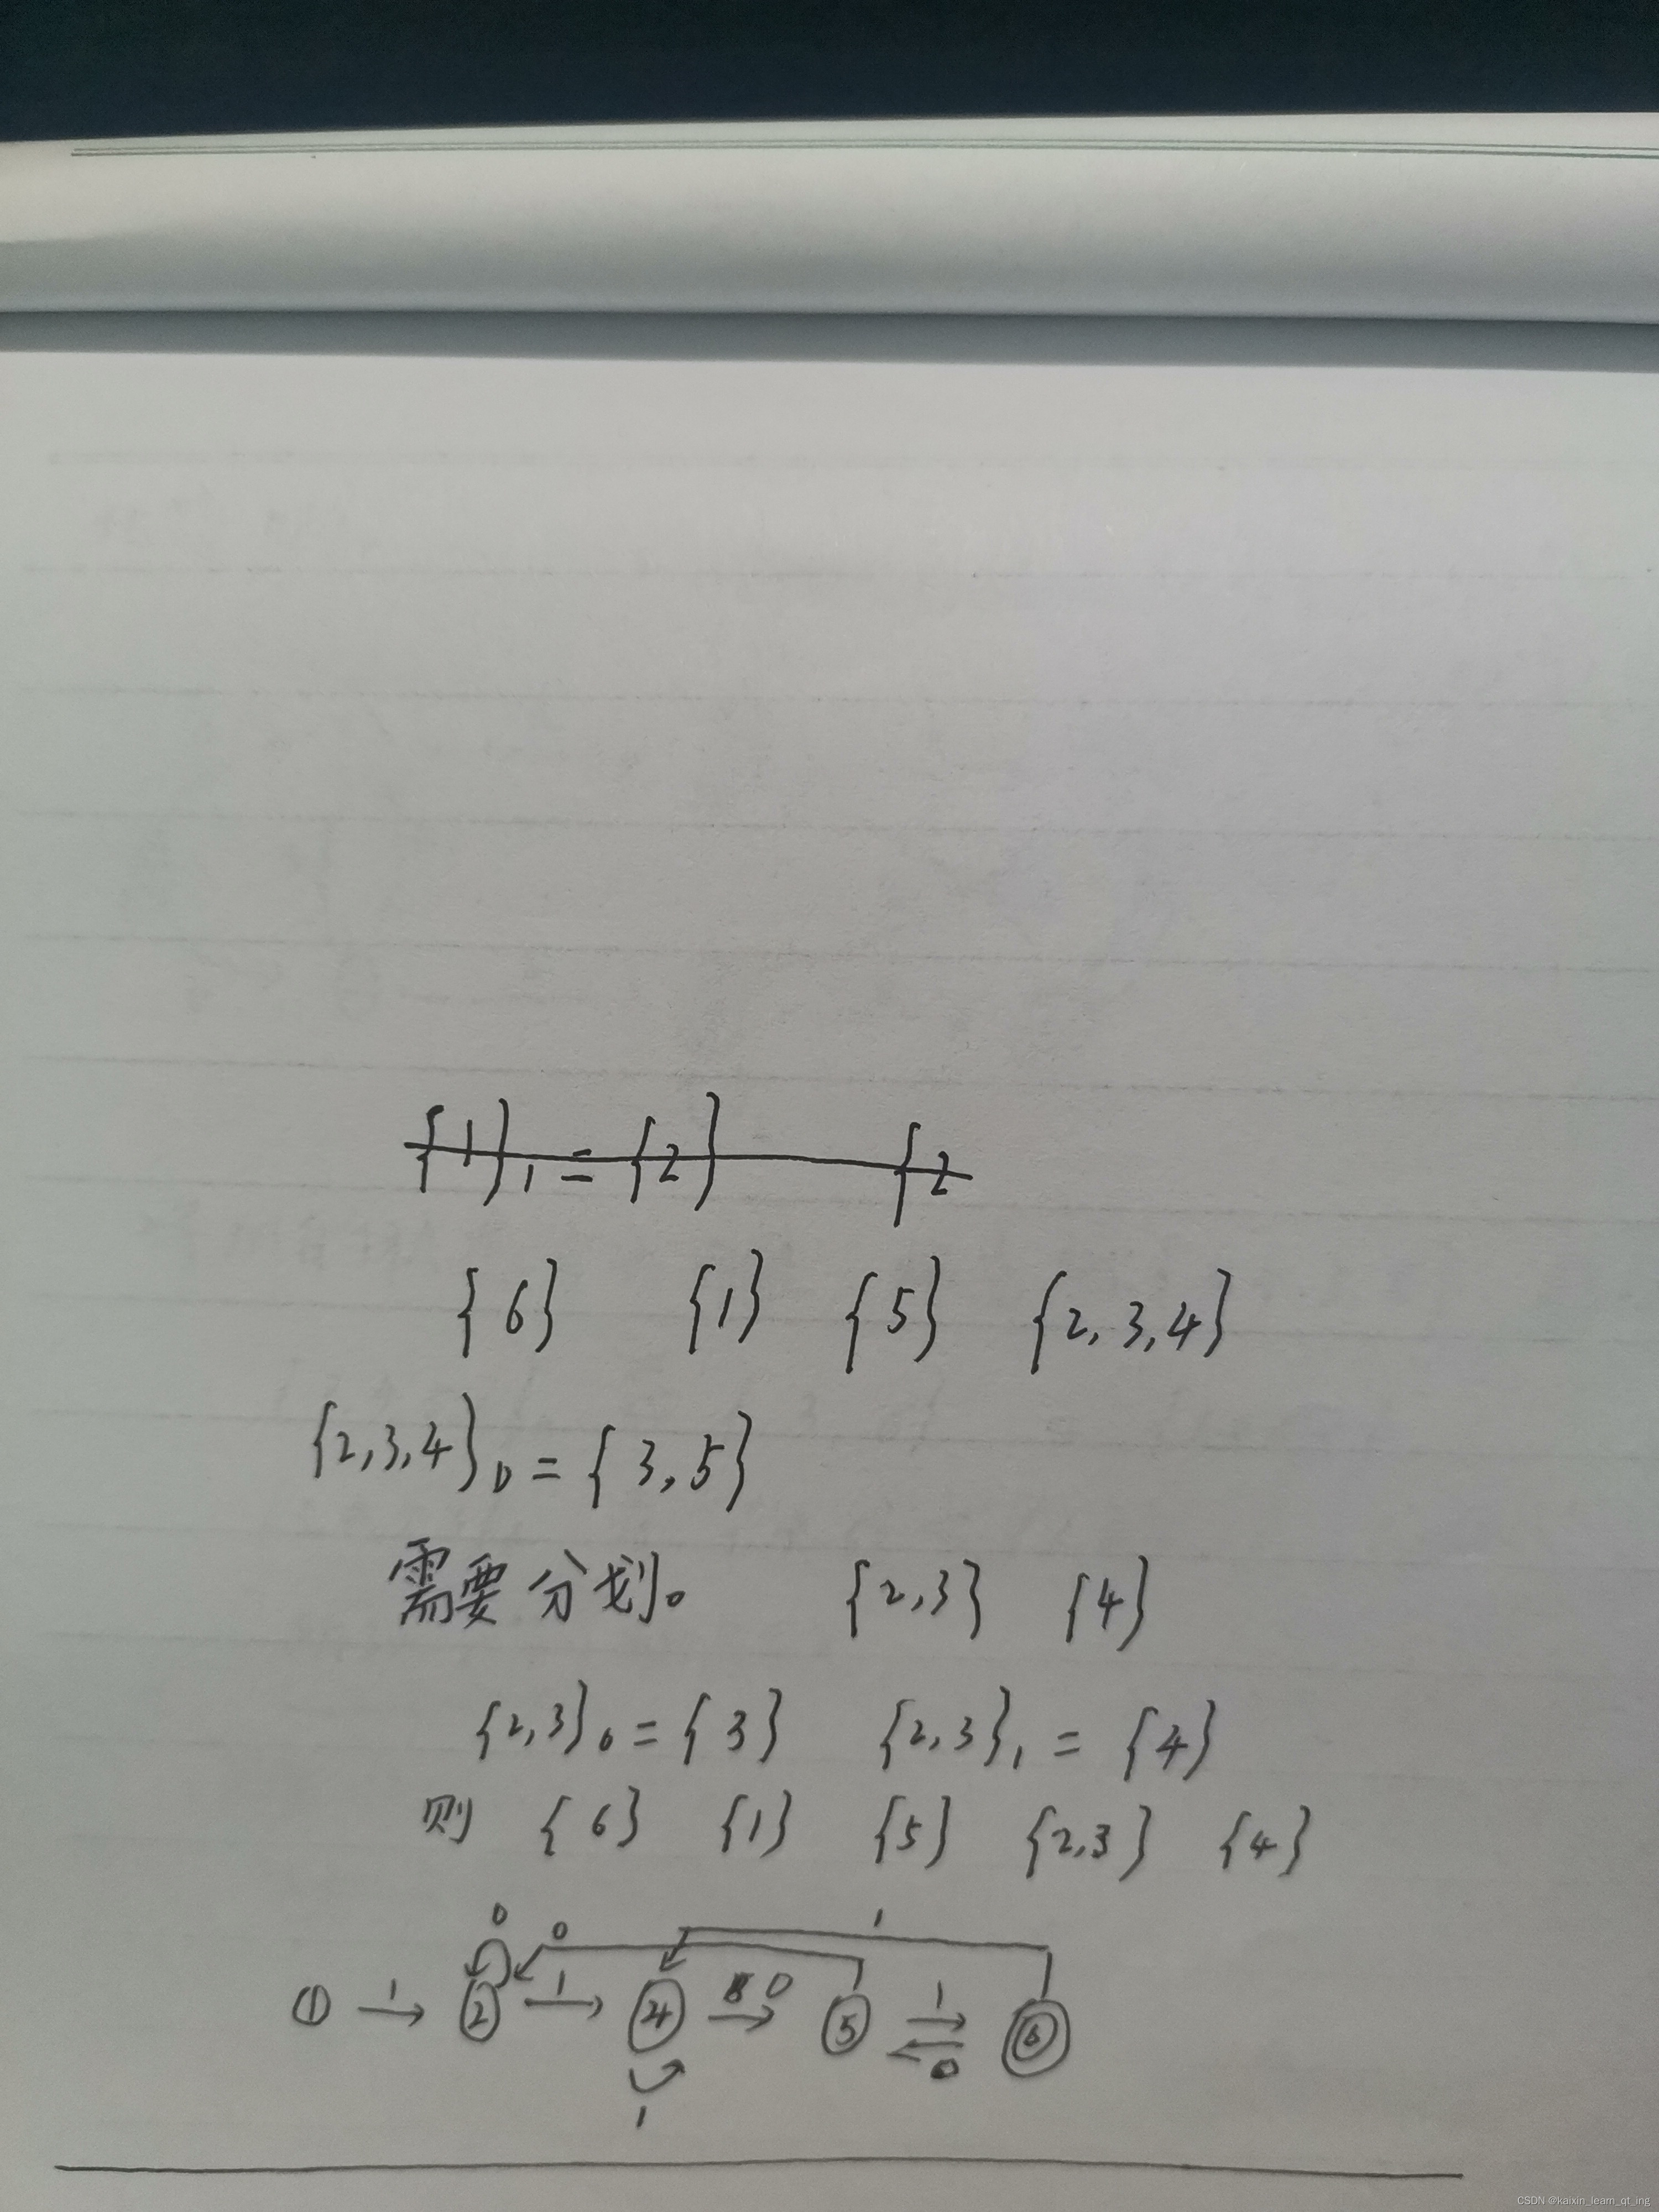 {1}₁ = {2} {2
{6} {1} {5} {2, 3, 4}
{2, 3, 4}₀ = {3, 5}
需要分划。 {2, 3} {4}
{2, 3}₀ = {3} {2, 3}₁ = {4}
则 {6} {1} {5} {2, 3} {4}
0 0 1
1 1 0 1
① ② ④ ⑤ ⑥
0
1
CSDN @kaixin_learn_qt_ing